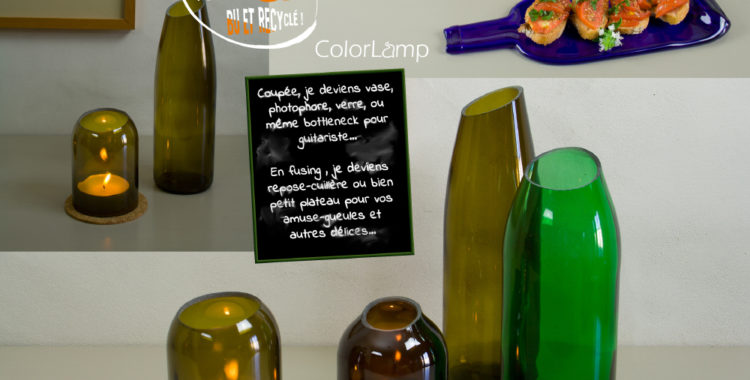 DU ET RECYCLÉ !
ColorLamp
Coupée, je deviens vase,
photophore, verre, ou
même bottleneck pour
guitariste...
En fusing , je deviens
repose-cuillère ou bien
petit plateau pour vos
amuse-gueules et
autres délices...